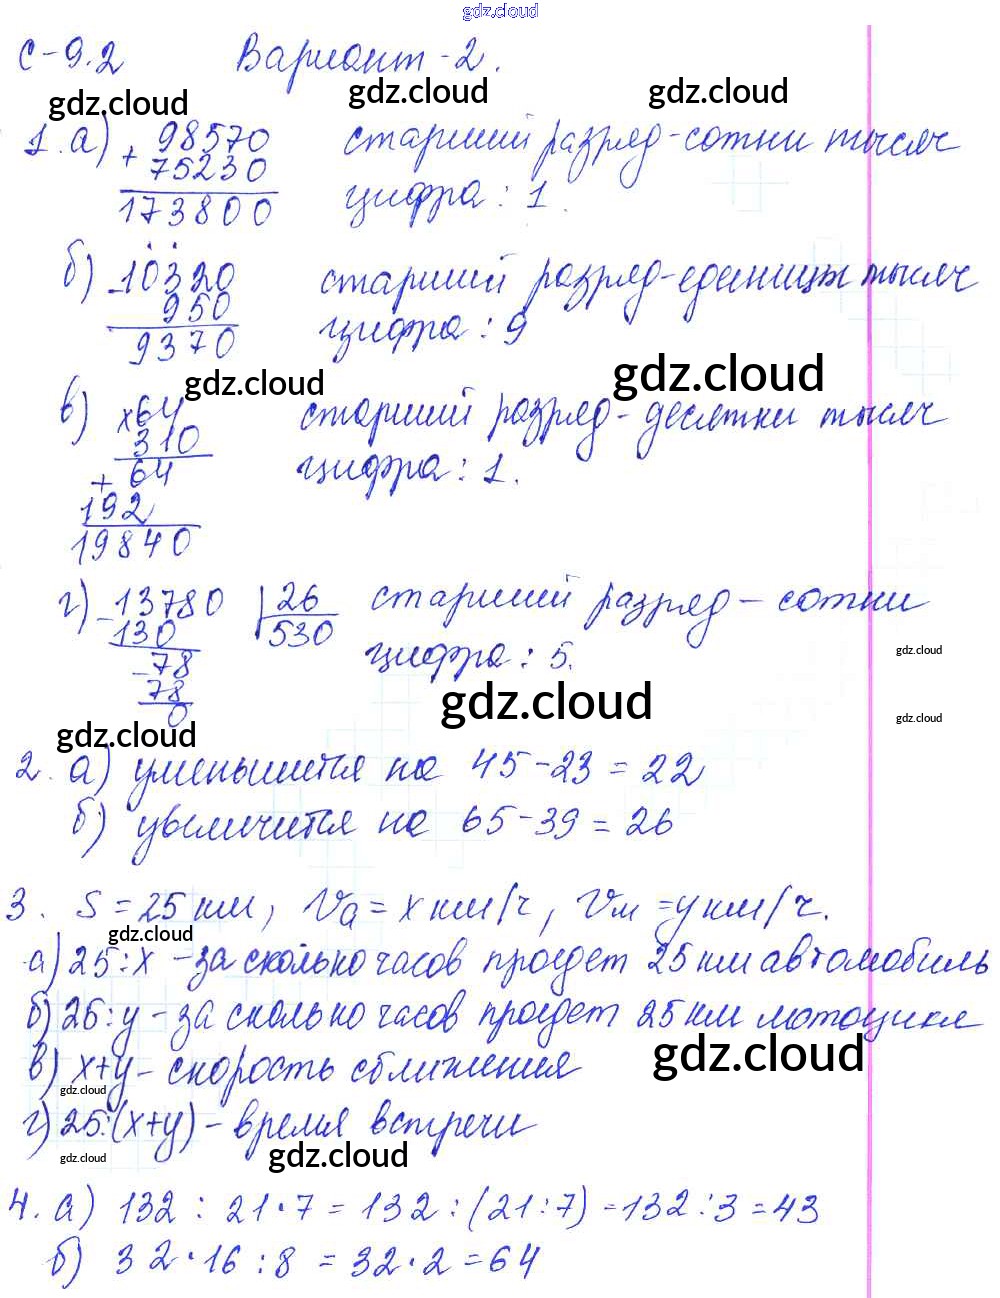 gdz.cloud
С-9.2 Вариант-2.
gdz.cloud gdz.cloud gdz.cloud
1. а) + 98570 старший разряд-сотни тысяч
75230
173800 цифра: 1.
б) - 10320 старший разряд-единицы тысяч
950
9370 цифра: 9
gdz.cloud gdz.cloud
в) х64 старший разряд-десятки тысяч
310
+ 64 цифра: 1.
192
19840
г) - 13780 26 старший разряд - сотни
130 530
- 78 цифра: 5.
78
0
gdz.cloud
gdz.cloud
gdz.cloud
gdz.cloud
2. а) уменьшится на 45-23=22
б) увеличится на 65-39=26
3. S=25 км, Vа=х км/ч, Vм=у км/ч.
gdz.cloud
а) 25:х - за сколько часов проедет 25 км автомобиль
б) 25:у - за сколько часов проедет 25 км мотоцикл
gdz.cloud
в) х+у - скорость сближения
gdz.cloud
г) 25:(х+у) - время встречи
gdz.cloud gdz.cloud
4. а) 132 : 21·7 = 132 : (21:7) = 132:3=43
б) 32·16:8 = 32·2=64